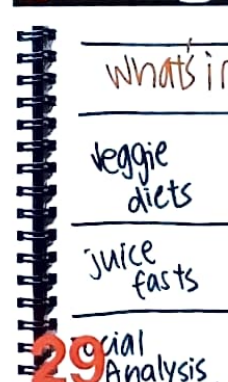 what's in
veggie
diets
juice
fasts
29
Analysis